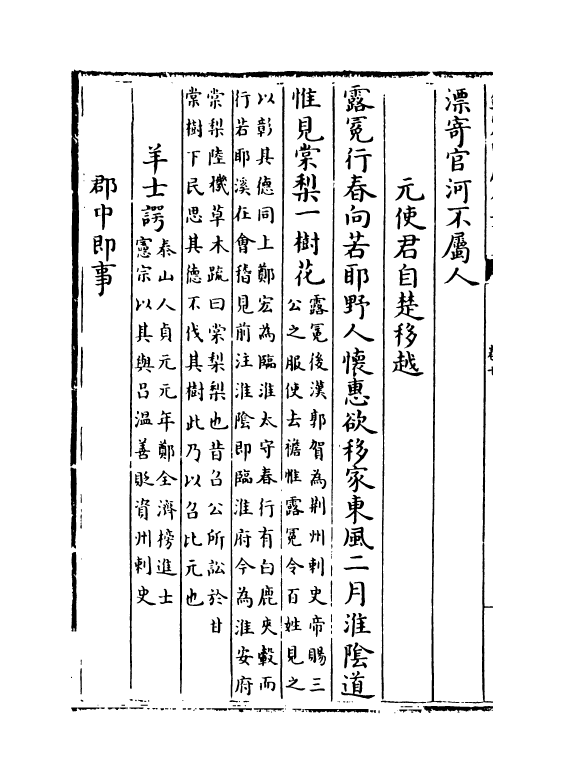 漂寄官河不屬人
元使君自楚移越
露冕行春向若耶野人懷惠欲移家東風二月淮陰道
惟見棠梨一樹花
露冕後漢郭賀為荆州刺史帝賜三
公之服使去襜惟露冕令百姓見之
以彰其德同上鄭宏為臨淮太守春行有白鹿夾轂而
行若耶溪在會稽見前注淮陰即臨淮府今為淮安府
棠梨陸機草木疏曰棠梨梨也昔召公所訟於甘
棠樹下民思其德不伐其樹此乃以召比元也
羊士諤
泰山人貞元元年鄭全濟榜進士
憲宗以其與吕温善貶資州刺史
郡中即事